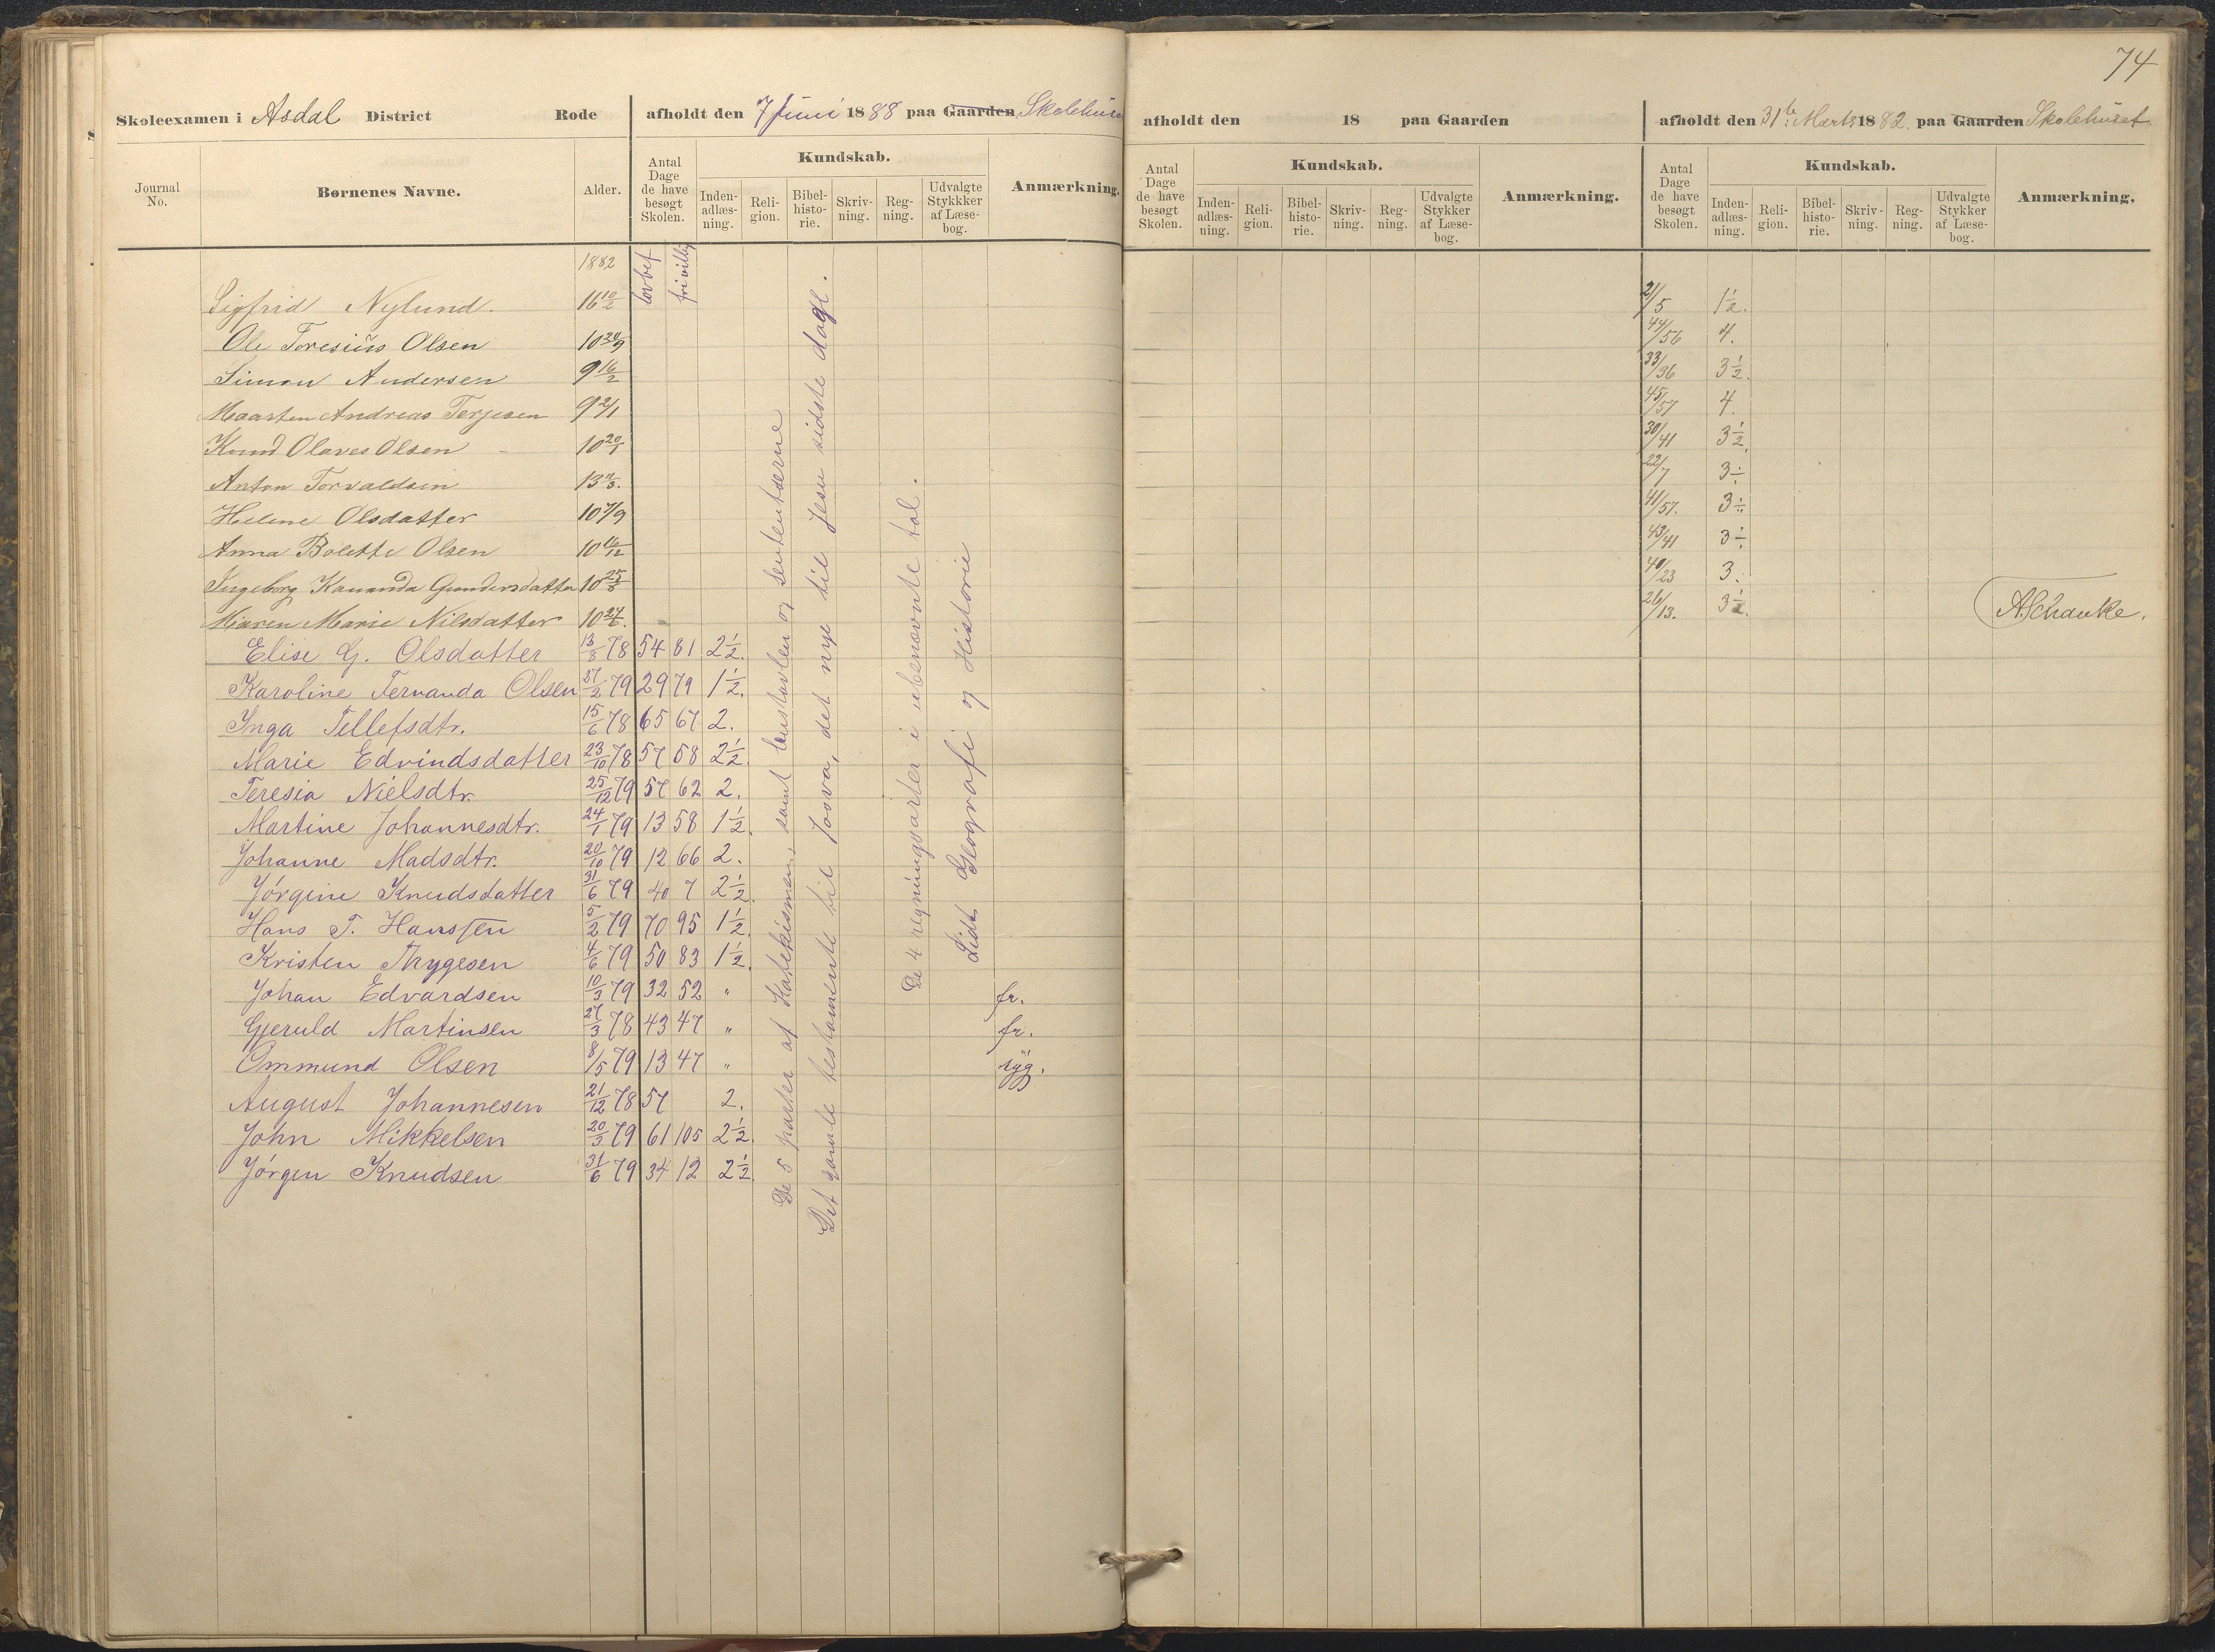 74
Skoleexamen i Asdal District Rode afholdt den 7 Juni 1888 paa Gaarden Skolehuset
afholdt den 18 paa Gaarden
afholdt den 31te Marts 1882. paa Gaarden Skolehuset
Journal No. Børnenes Navne. Alder. Antal Dage de have besøgt Skolen. Kundskab. Inden-adlæs-ning. Reli-gion. Bibel-histo-rie. Skriv-ning. Reg-ning. Udvalgte Stykkker af Læse-bog. Anmærkning.
Antal Dage de have besøgt Skolen. Kundskab. Inden-adlæs-ning. Reli-gion. Bibel-histo-rie. Skriv-ning. Reg-ning. Udvalgte Stykker af Læse-bog. Anmærkning.
Antal Dage de have besøgt Skolen. Kundskab. Inden-adlæs-ning. Reli-gion. Bibel-histo-rie. Skriv-ning. Reg-ning. Udvalgte Stykker af Læse-bog. Anmærkning.
1882 lovbef frivillig
Sigfrid Nylund. 16 10/2 21/5 1½.
Ole Toresius Olsen 10 20/9 44/56 4.
Simon Andersen 9 16/2 33/36 3½.
Maarten Andreas Terjesen 9 2/1 45/57 4.
Knud Olaves Olsen 10 20/1 30/41 3½.
Anton Torvaldsen 22/7 3÷
Helene Olsdatter 10 7/9 41/57. 3÷
Anna Bolette Olsen 10 16/12 43/41 3÷
Ingeborg Kananda Gundersdatter 10 25/3 40/23 3.
Maren Marie Nilsdatter 10 24/6. 26/13. 3½. A. Schanke.
Elise G. Olsdatter 13/8 78 54 81 2½.
Karoline Fernanda Olsen 27/2 79 29 79 1½.
Inga Tellefsdtr. 15/6 78 65 67 2.
Marie Edvindsdatter 23/10 78 57 58 2½.
Teresia Nielsdtr. 25/12 79 57 62 2.
Martine Johannesdtr. 24/1 79 13 58 1½.
Johanne Madsdtr. 20/10 79 12 66 2.
Jörgine Knudsdatter 31/6 79 40 7 2½.
Hans T. Hanssen 5/2 79 70 95 1½.
Kristen Thygesen 4/6 79 50 83 1½.
Johan Edvardsen 10/3 79 32 52 " fr.
Gjeruld Martinsen 27/3 78 43 47 " fr.
Ommund Olsen 8/5 79 13 47 " syg.
August Johannesen 21/12 78 57 2.
John Mikkelsen 20/3 79 61 105 2½.
Jörgen Knudsen 31/6 79 34 12 2½.
De 5 parter af Katekismen, samt hustavlen og sententserne
Det gamle testamente til Josva, det nye til Jesu sidste dage.
De 4 regningsarter i ubenævnte tal.
Lidt Geografi og Historie